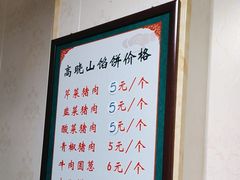 高晓山馅饼价格
芹菜猪肉 5元/个
韭菜猪肉 5元/个
酸菜猪肉 5元/个
青椒猪肉 5元/个
牛肉圆葱 6元/个